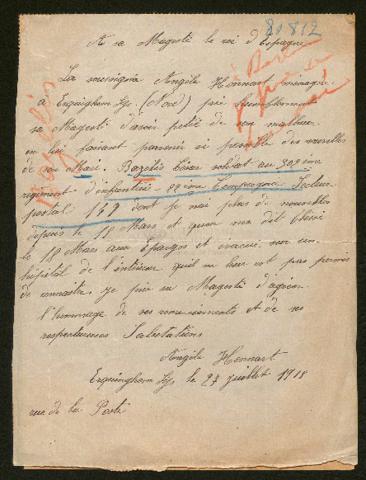 81812
A sa Magesté le roi d'Espagne
La soussignée Angèle Hennart ménagère
à Erquinghem Lys (Nord) prie humblement
sa Magesté d'avoir pitié de son malheur
en lui faisant parvenir si possible des nouvelles
de son Mari. Bazelis César soldat au 302 ème
regiment d'infanterie 22 ème Compagnie Secteur
postal 149 dont je n'ai plus de nouvelles
depuis le 19 Mars et qu'on m'a dit blessé
le 18 Mars aux Eparges et évacué sur un
hôpital de l'intérieur qu'il ne leur est pas permis
de connaître. je prie sa Magesté d'agréer
l'hommage de ses remerciements et de ses
respectueuses Salutations
Angèle Hennart
Erquinghem Lys le 27 juillet 1915
rue de la Poste